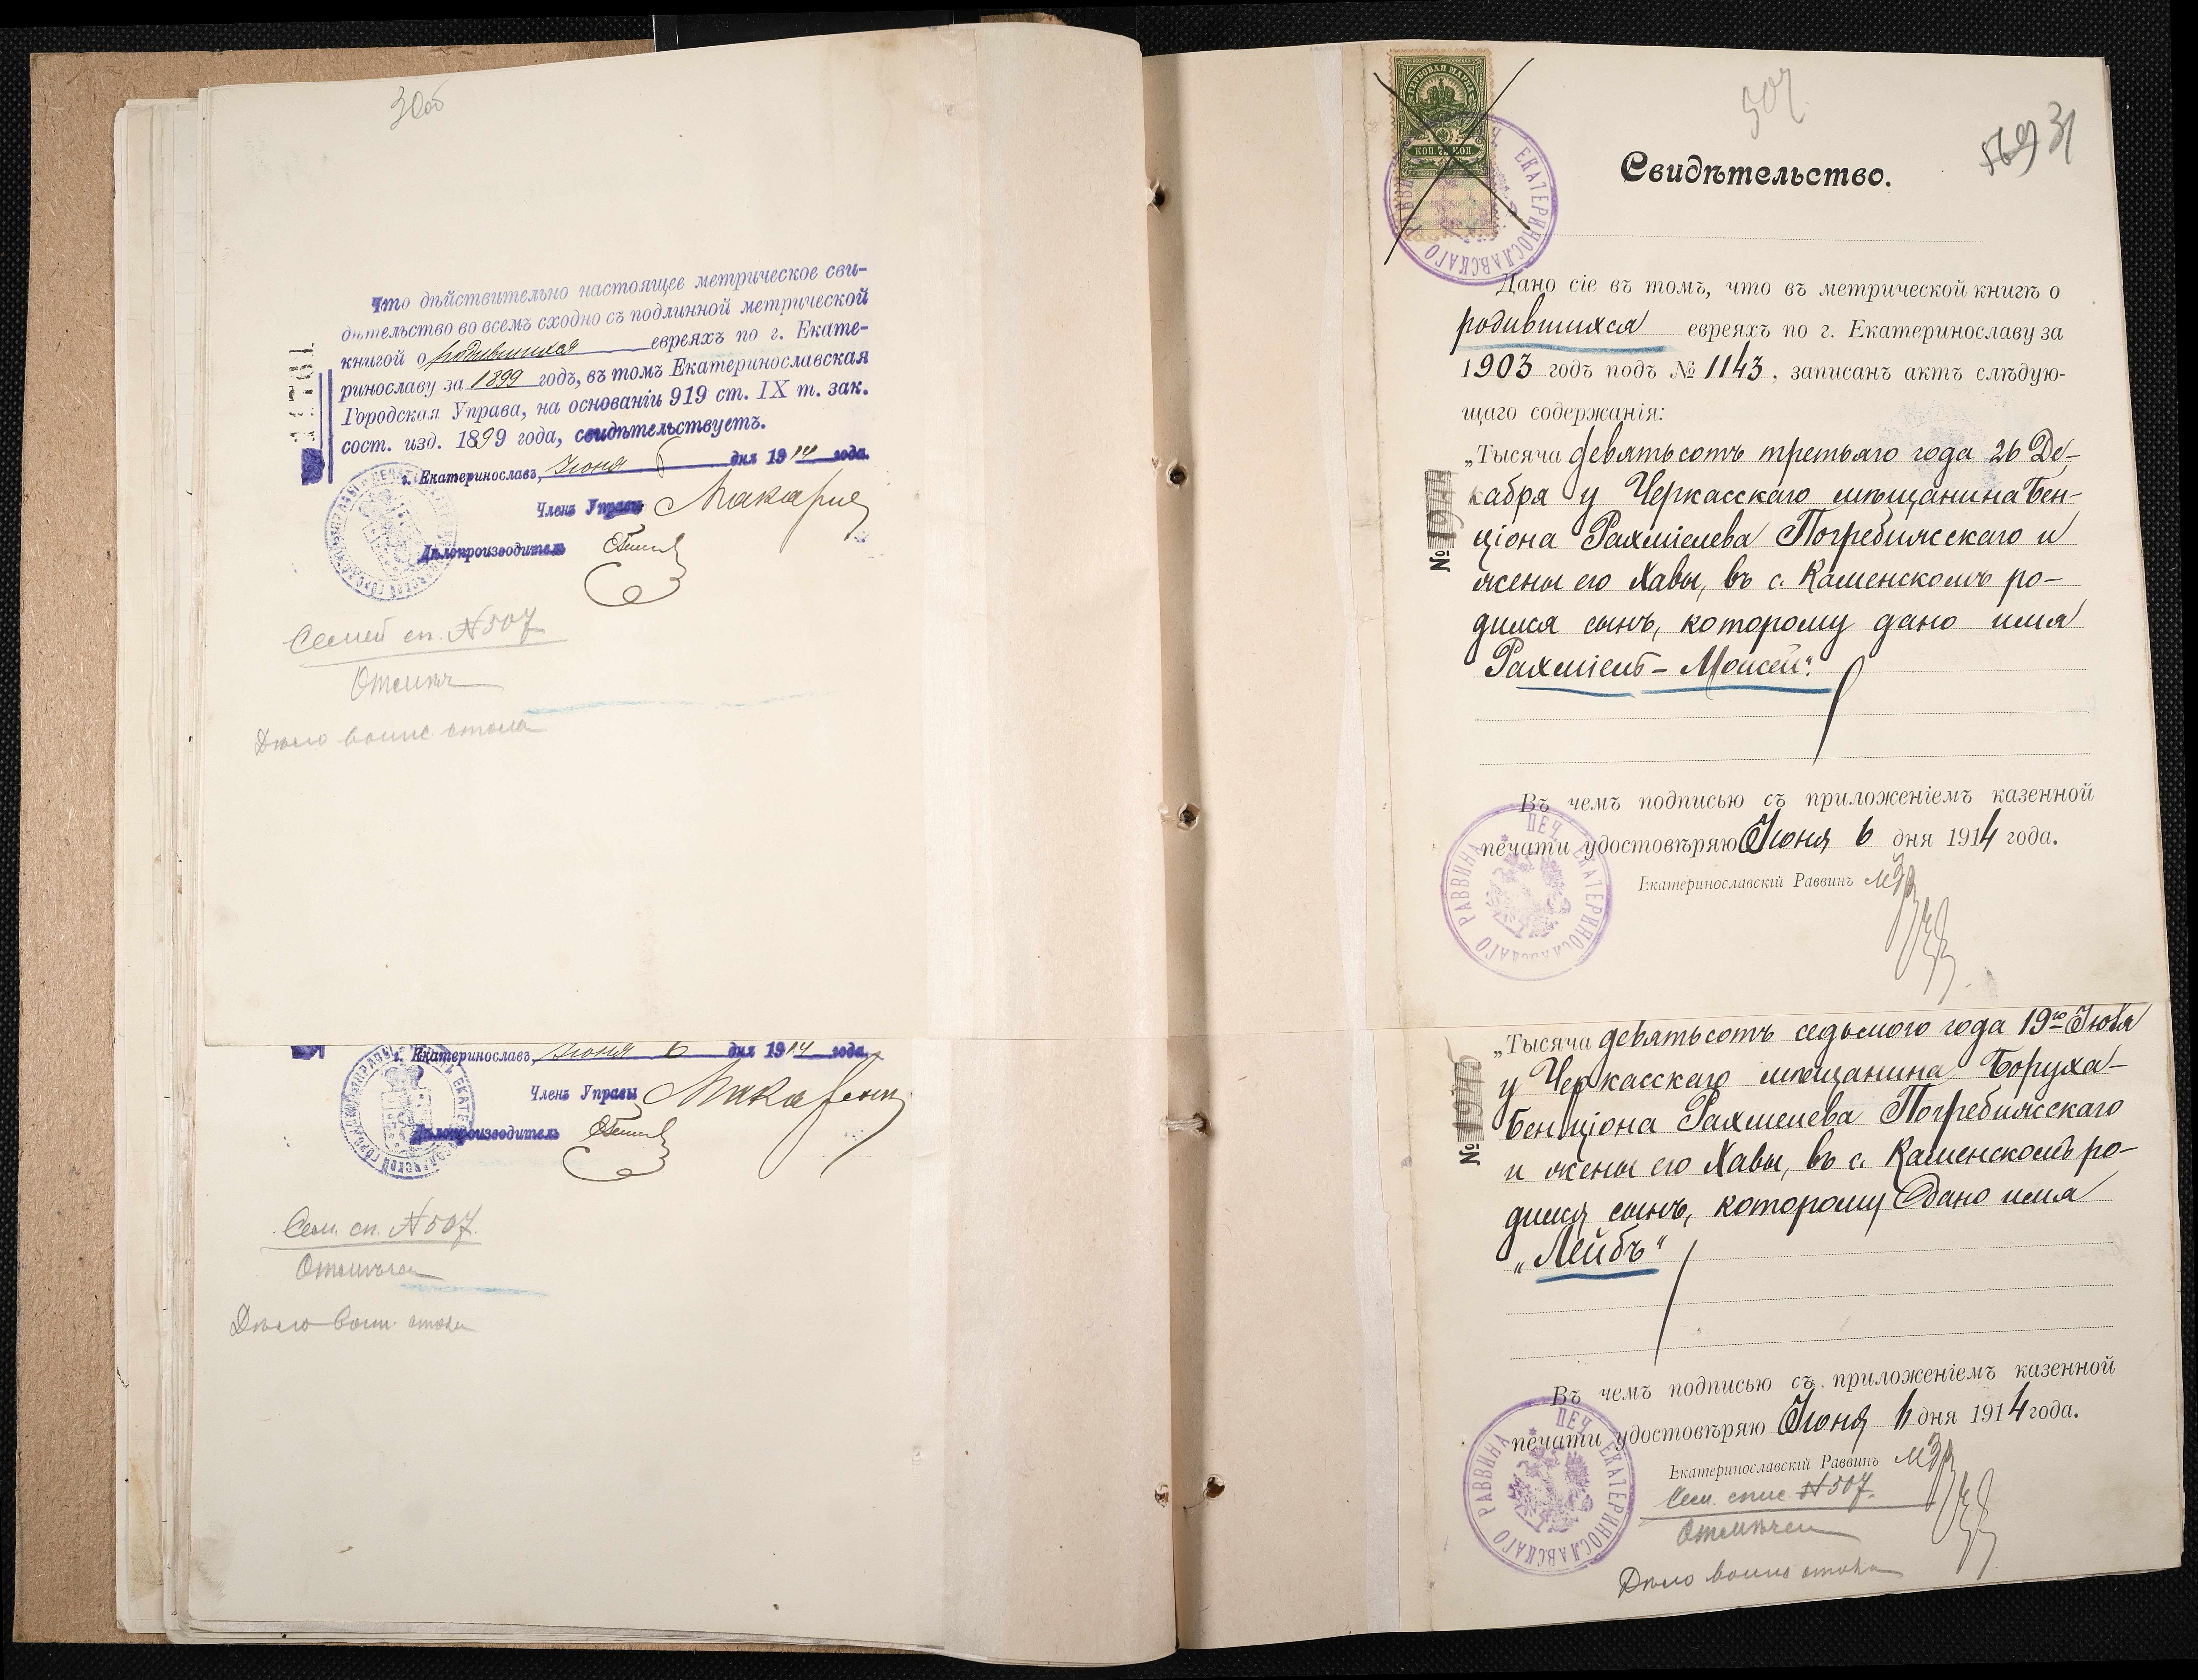 30об
Что дѣйствительно настоящее метрическое сви-
дѣтельство во всемъ сходно съ подлинной метрической
книгой о родившихся евреяхъ по г. Екате-
ринославу за 1899 годъ, въ томъ Екатеринославская
Городская Управа, на основаніи 919 ст. IX т. зак.
сост. изд. 1899 года, свидѣтельствуетъ.
г. Екатеринославъ, Іюня 6 дня 1914 года.
Членъ Управы
Дѣлопроизводитель
Семей сп. N 507
Отмѣч
Дѣло воинс стола
г. Екатеринославъ, Іюня 6 дня 1914 года.
Членъ Управы
Дѣлопроизводитель
Сем. сп. N 507.
Отмѣчен
Дѣло воин стола
ГЕРБОВАЯ МАРКА
КОП. 75 КОП.
ЕКАТЕРИНОСЛАВСКАГО РАВВИНА
507
569 31
Свидѣтельство.
Дано сіе въ томъ, что въ метрической книгѣ о
родившихся евреяхъ по г. Екатеринославу за
1903 годъ подъ № 1143, записанъ актъ слѣдую-
щаго содержанія:
„Тысяча девятьсотъ третьяго года 26 Де-
кабря у Черкасскаго мѣщанина Бен-
ціона Рахміелева Погребижскаго и
жены его Хавы, въ с. Каменскомъ ро-
дился сынъ, которому дано имя
Рахміель-Моисей".
№ 1944
Въ чемъ подписью съ приложеніемъ казенной
печати удостовѣряю Іюня 6 дня 1914 года.
Екатеринославскій Раввинъ
ПЕЧ ЕКАТЕРИНОСЛАВСКАГО РАВВИНА
„Тысяча девятьсотъ седьмого года 19го Іюля
у Черкасскаго мѣщанина Боруха-
Бенціона Рахмелева Погребижскаго
и жены его Хавы, въ с. Каменскомъ ро-
дился сынъ, которому дано имя
„Лейбъ"
№ 1945
Въ чемъ подписью съ приложеніемъ казенной
печати удостовѣряю Іюня 6 дня 1914 года.
Екатеринославскій Раввинъ
ПЕЧ ЕКАТЕРИНОСЛАВСКАГО РАВВИНА
Сем. спис N 507.
Отмѣчен
Дѣло воинс стола